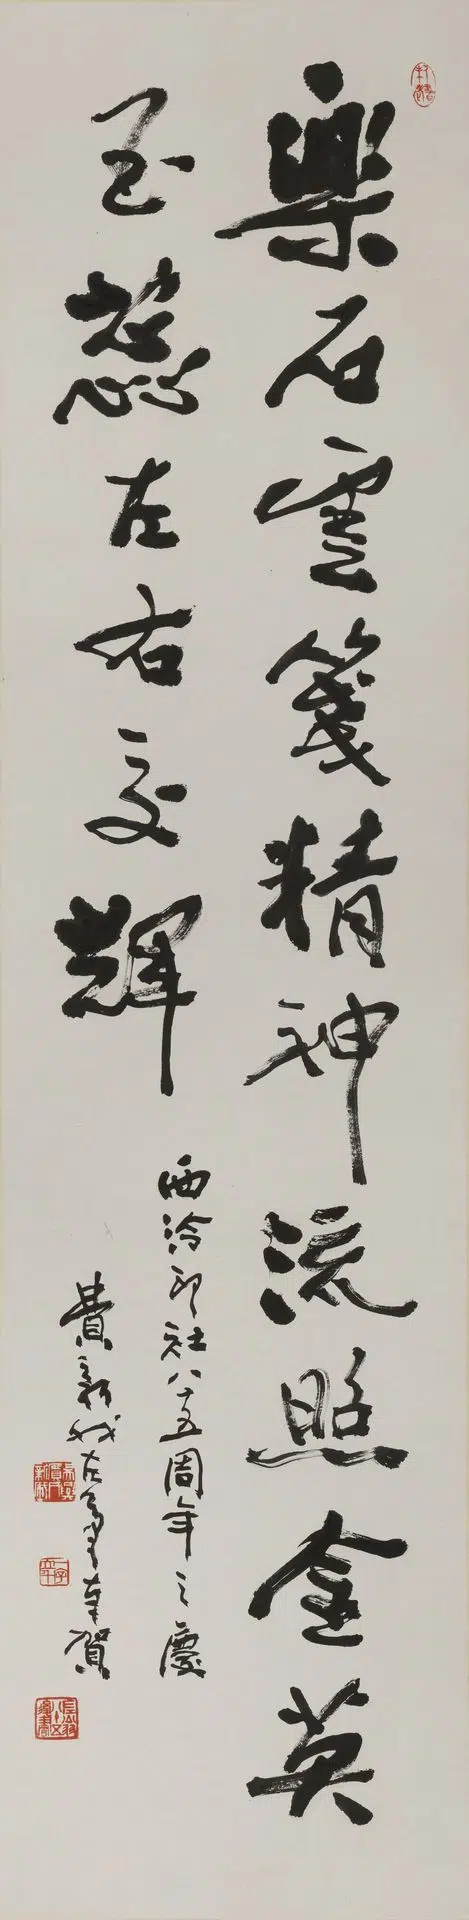 樂石雲箋精神流照金英
玉蕊左右交輝
西泠印社八十五周年之慶
費新我左筆奉賀